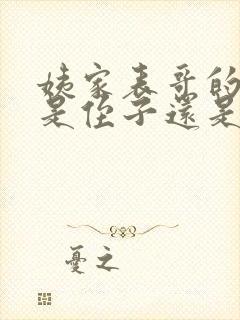 姨家表哥的
是侄子還是
憂之